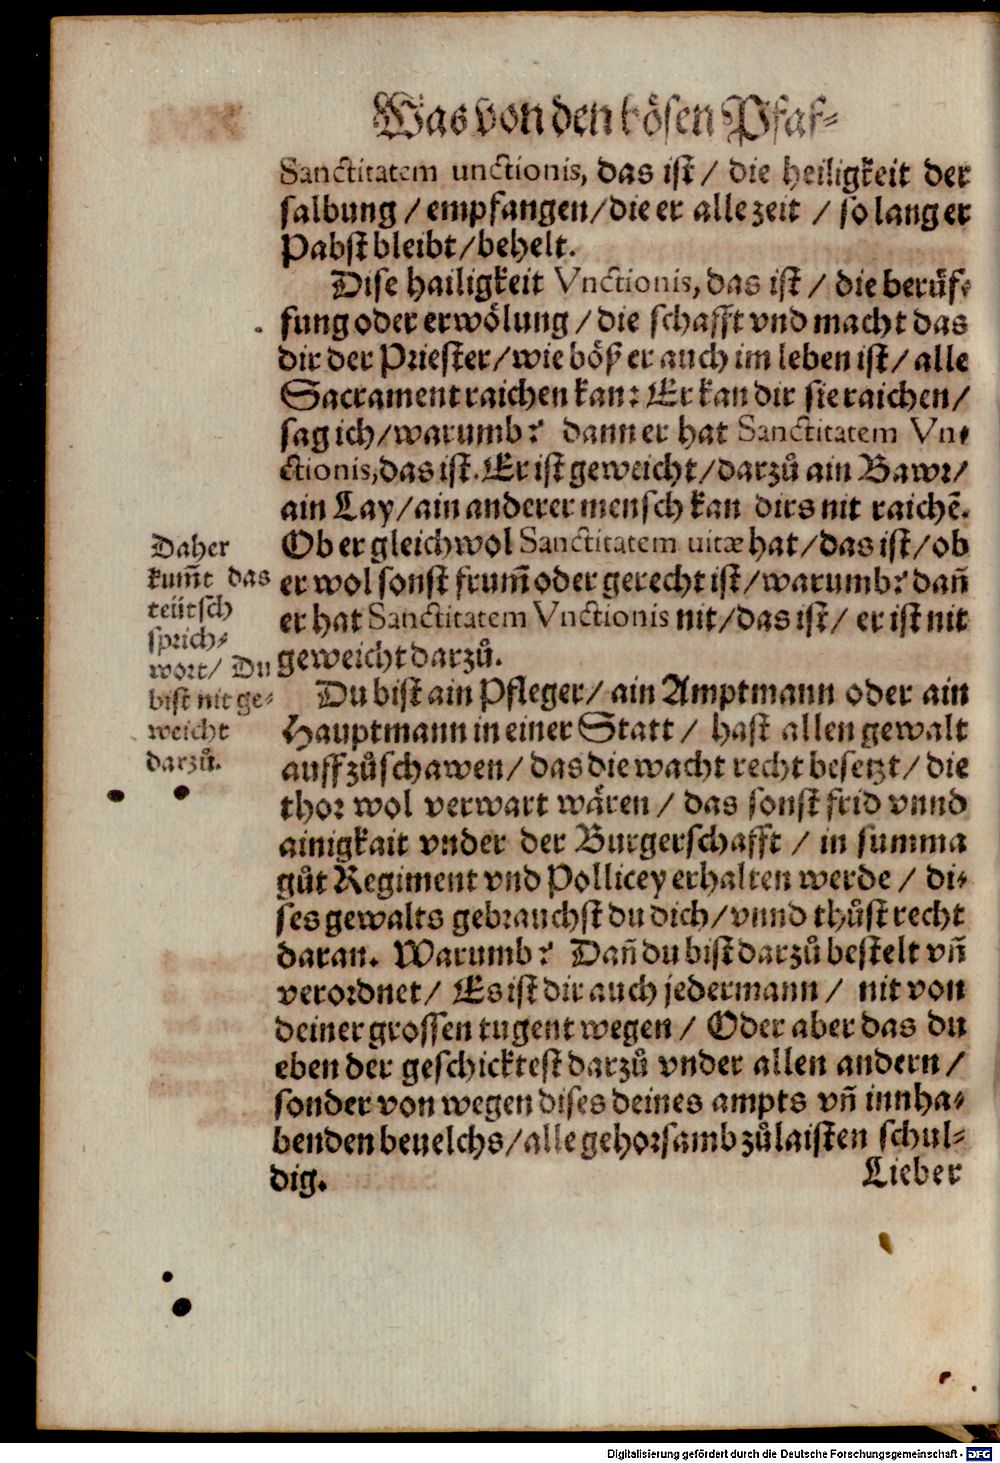 Was von den bösen Pfaf-
Sanctitatem unctionis, das ist / die heiligkeit der
salbung / empfangen / die er alle zeit / so lang er
Pabst bleibt / behelt.
Dise hailigkeit Vnctionis, das ist / die berüf-
fung oder erwölung / die schafft vnd macht das
dir der Priester / wie böß er auch im leben ist / alle
Sacrament raichen kan: Er kan dir sie raichen /
sag ich / warumb? dann er hat Sanctitatem Vn-
ctionis, das ist. Er ist geweicht / darzů ain Bawr /
ain Lay / ain anderer mensch kan dirs nit raichē.
Ob er gleich wol Sanctitatem uitæ hat / das ist / ob
er wol sonst frum̃ oder gerecht ist / warumb? dañ
er hat Sanctitatem Vnctionis nit / das ist / er ist nit
geweicht darzů.
Daher
kum̃t das
teütsch
sprich-
wort / Du
bist nit ge-
weicht
darzů.
Du bist ain Pfleger / ain Amptmann oder ain
Hauptmann in einer Statt / hast allen gewalt
auffzůschawen / das die wacht recht besetzt / die
thor wol verwart wären / das sonst frid vnnd
ainigkait vnder der Burgerschafft / in summa
gůt Regiment vnd Pollicey erhalten werde / di-
ses gewalts gebrauchst du dich / vnnd thůst recht
daran. Warumb? Dañ du bist darzů bestelt vñ
verordnet / Es ist dir auch jedermann / nit von
deiner grossen tugent wegen / Oder aber das du
eben der geschicktest darzů vnder allen andern /
sonder von wegen dises deines ampts vñ innha-
benden beuelchs / alle gehorsamb zůlaisten schul-
dig.
Lieber
Digitalisierung gefördert durch die Deutsche Forschungsgemeinschaft - DFG